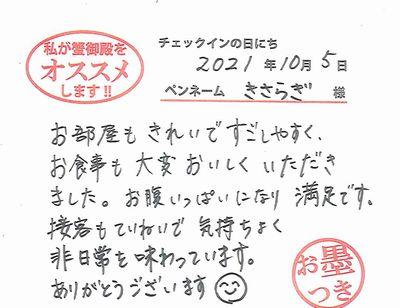 私が蟹御殿を
オススメ
します!!
チェックインの日にち
2021年10月5日
ペンネーム きさらぎ 様
お部屋もきれいですごしやすく、
お食事も大変おいしくいただき
ました。お腹いっぱいになり満足です。
接客もていねいで気持ちよく
非日常を味わっています。
ありがとうございます
お墨
つき